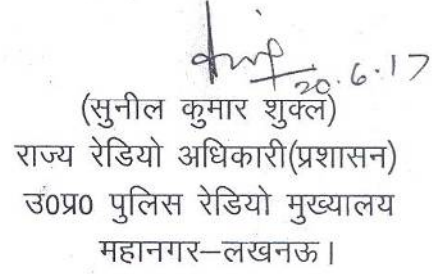 20.6.17
(सुनील कुमार शुक्ल)
राज्य रेडियो अधिकारी(प्रशासन)
उ0प्र0 पुलिस रेडियो मुख्यालय
महानगर–लखनऊ।